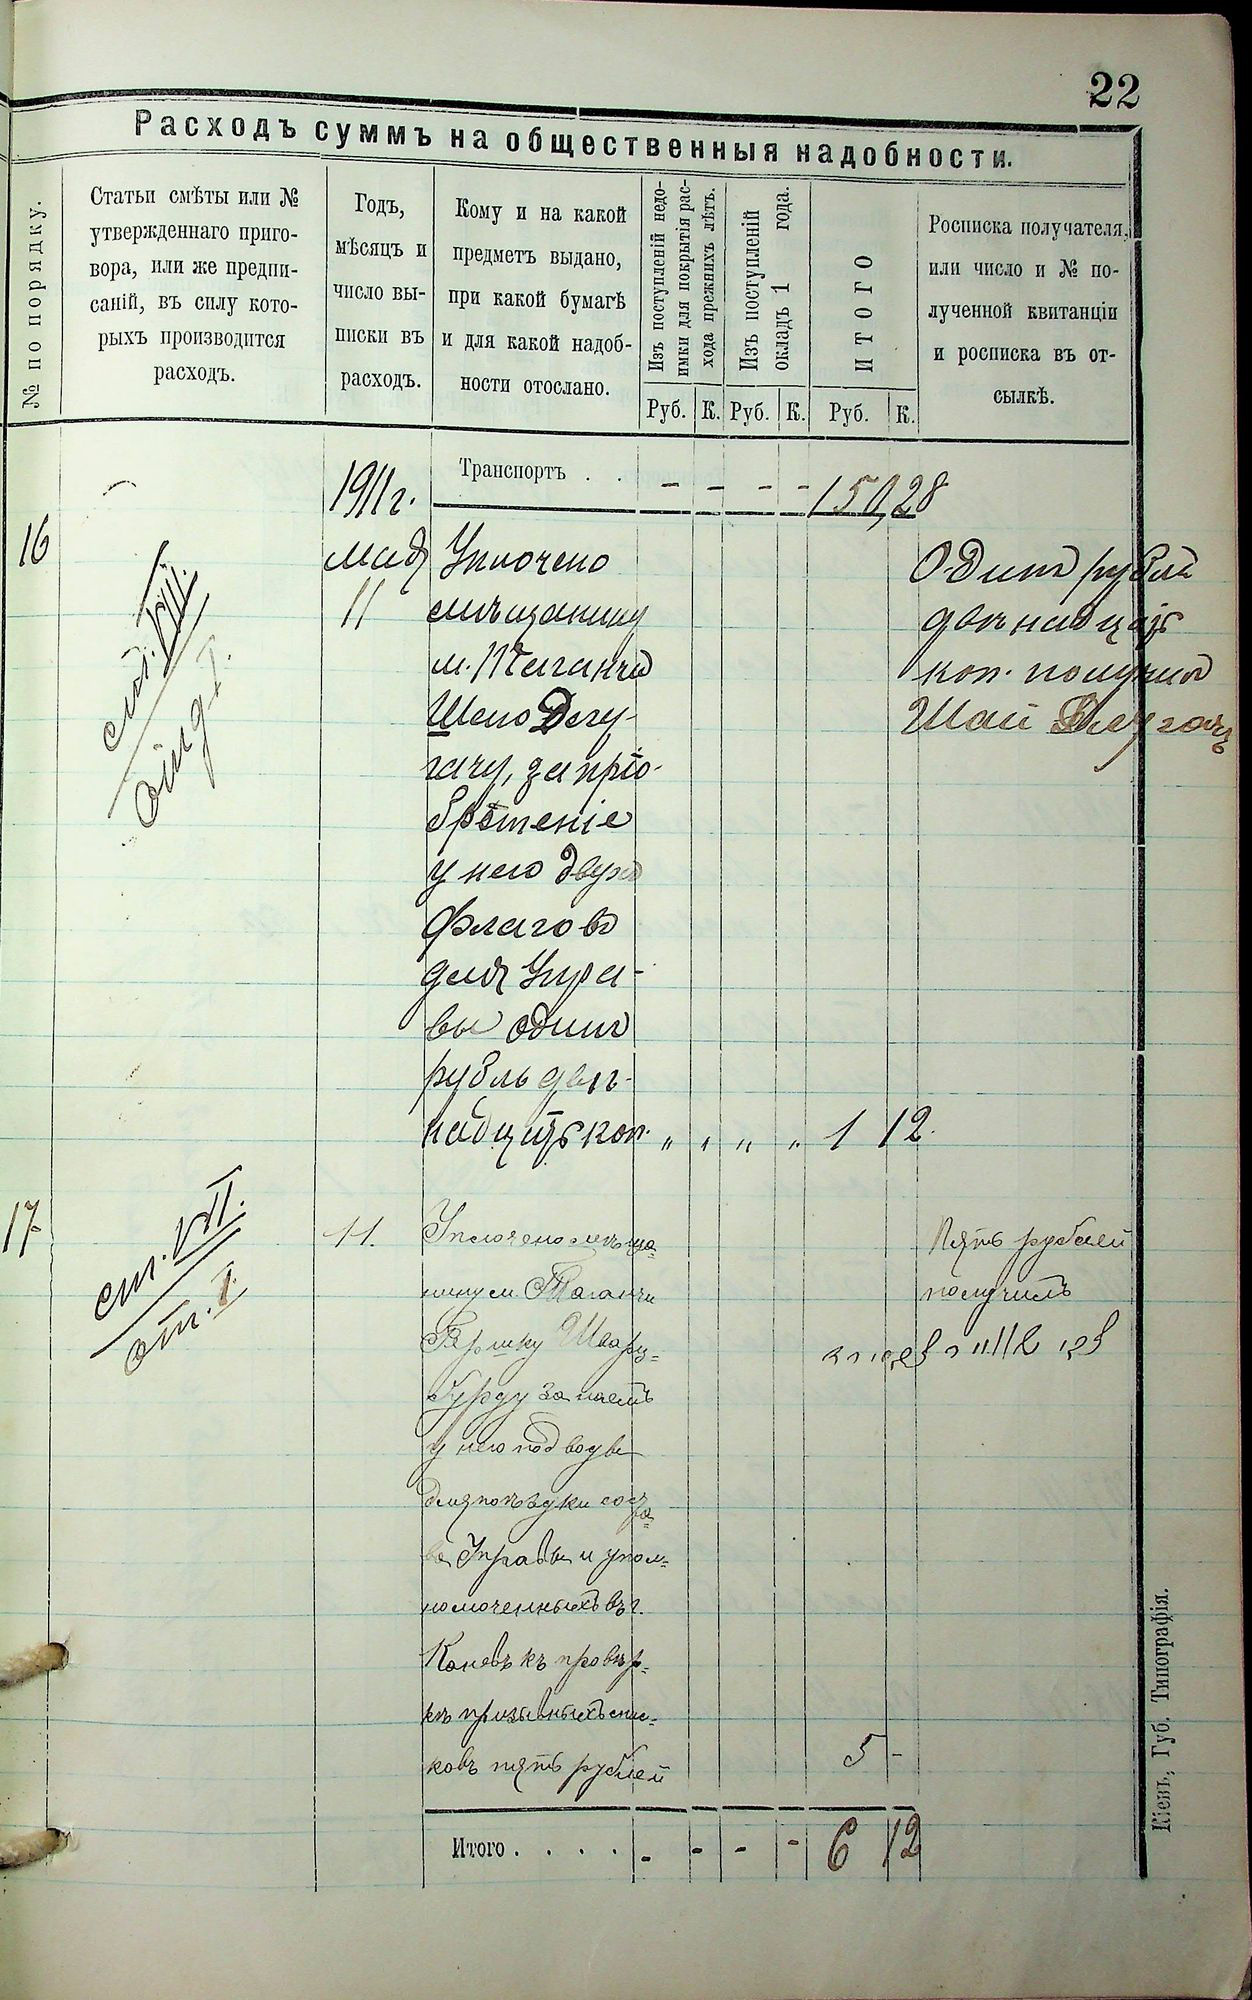 22
Расходъ суммъ на общественныя надобности.
№ по порядку.
Статьи смѣты или №
утвержденнаго приго-
вора, или же предпи-
саній, въ силу кото-
рыхъ производится
расходъ.
Годъ,
мѣсяцъ и
число вы-
писки въ
расходъ.
Кому и на какой
предметъ выдано,
при какой бумагѣ
и для какой надоб-
ности отослано.
Изъ поступленій недо-
имки для покрытія рас-
хода прежнихъ лѣтъ.
Изъ поступленій
окладъ 1 года.
ИТОГО
Росписка получателя,
или число и № по-
лученной квитанціи
и росписка въ от-
сылкѣ.
Руб. К. Руб. К. Руб. К.
1911 г.
Транспортъ . . - - - - 150,28
16
ст. VIII.
Мая
11
Уплочено
мѣщанину
м. Таганчи
Шею
гачу, за прiо-
брѣтеніе
у него двухъ
флаговъ
для Упра-
вы одинъ
рубль двѣ-
надцать коп. „ „ „ „ 1 12.
Одинъ рубль
двѣнадцать
коп. получилъ
Шая
17
ст. VII.
от. I.
11.
Уплочено мѣща-
нину м. Таганчи
Гершку Шварц-
бурду за наемъ
у него подводы
для поѣздки соста-
ва Управы и упол-
номоченныхъ въ г.
Каневъ къ провѣр-
кѣ призывныхъ спис-
ковъ пять рублей
5 -
Пять рублей
получилъ
Итого . . . . - - - - 6 12
Кіевъ, Губ. Типографія.